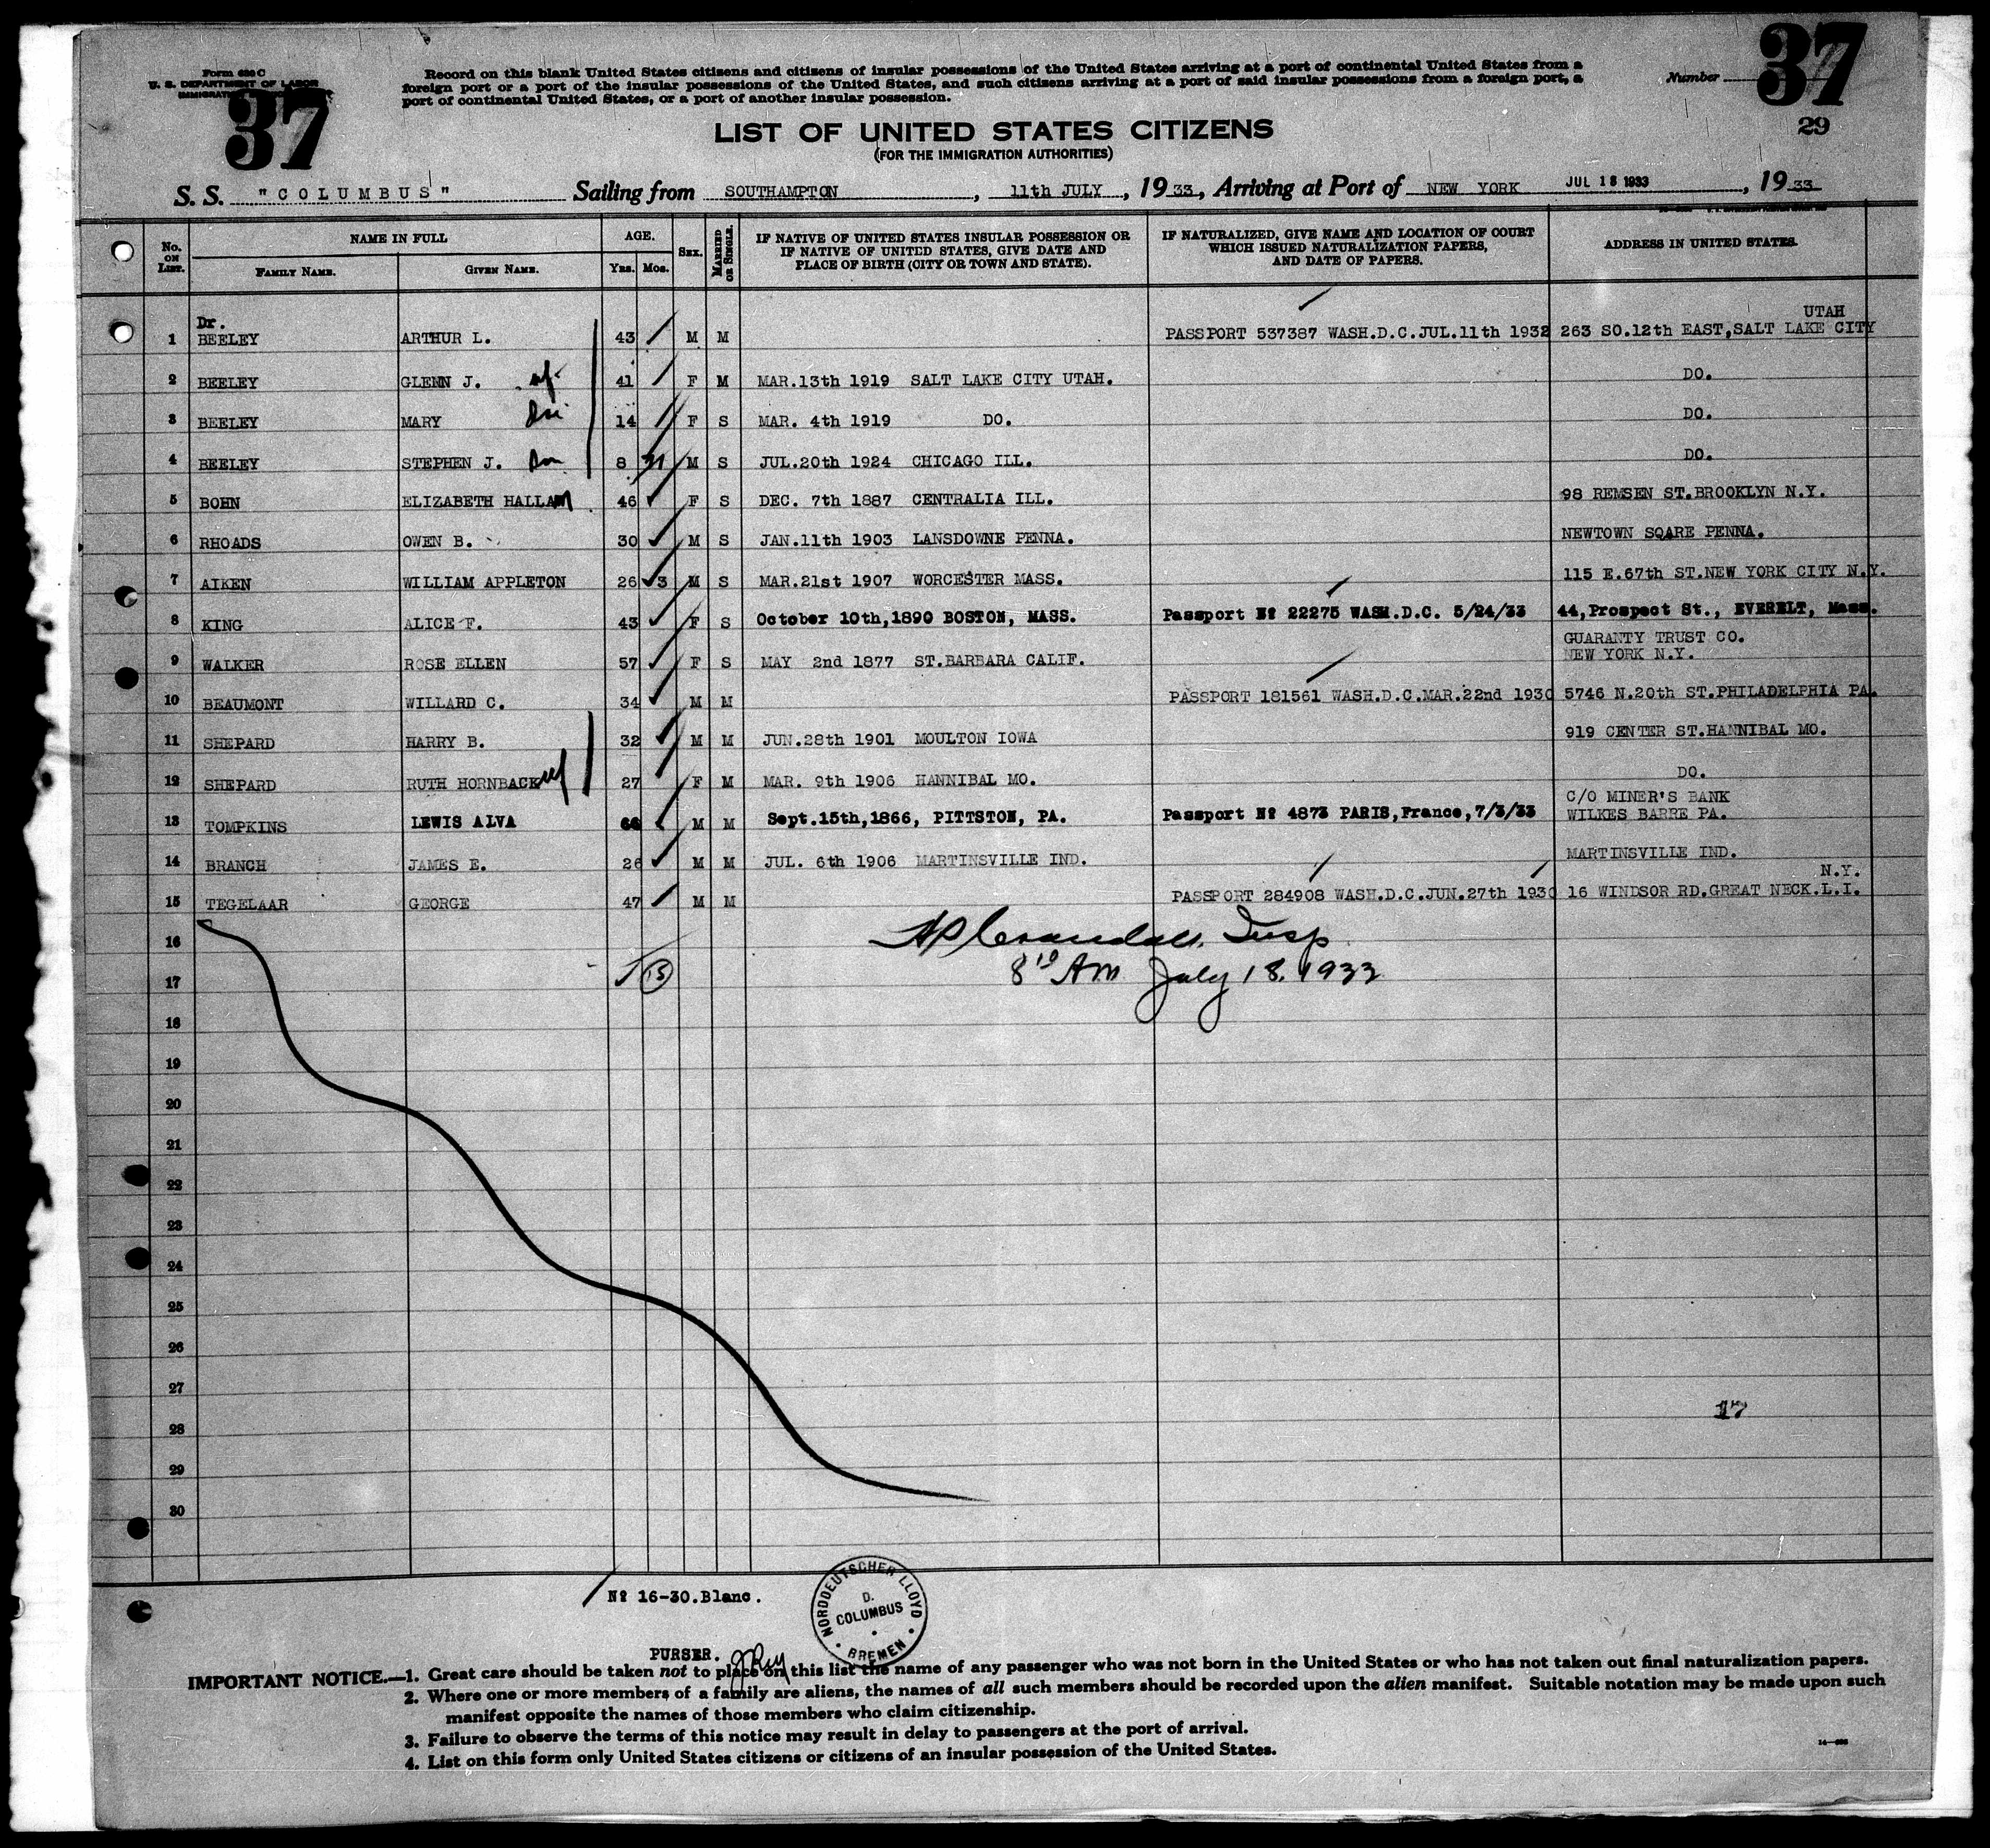 Form 630 C
U. S. DEPARTMENT OF LABOR
37
Record on this blank United States citizens and citizens of insular possessions of the United States arriving at a port of continental United States from a
foreign port or a port of the insular possessions of the United States, and such citizens arriving at a port of said insular possessions from a foreign port, a
port of continental United States, or a port of another insular possession.
Number 37
29
LIST OF UNITED STATES CITIZENS
(FOR THE IMMIGRATION AUTHORITIES)
S. S. "COLUMBUS" Sailing from SOUTHAMPTON, 11th JULY, 1933, Arriving at Port of NEW YORK JUL 18 1933, 1933
No. ON LIST. NAME IN FULL FAMILY NAME. GIVEN NAME. AGE. YRS. MOS. SEX. MARRIED OR SINGLE. IF NATIVE OF UNITED STATES INSULAR POSSESSION OR IF NATIVE OF UNITED STATES, GIVE DATE AND PLACE OF BIRTH (CITY OR TOWN AND STATE). IF NATURALIZED, GIVE NAME AND LOCATION OF COURT WHICH ISSUED NATURALIZATION PAPERS, AND DATE OF PAPERS. ADDRESS IN UNITED STATES.
1 Dr. BEELEY ARTHUR L. 43 M M PASSPORT 537387 WASH.D.C.JUL.11th 1932 263 SO.12th EAST,SALT LAKE CITY UTAH
2 BEELEY GLENN J. wf 41 F M MAR.13th 1919 SALT LAKE CITY UTAH. DO.
3 BEELEY MARY 14 F S MAR. 4th 1919 DO. DO.
4 BEELEY STEPHEN J. 8 M S JUL.20th 1924 CHICAGO ILL. DO.
5 BOHN ELIZABETH HALLAM 46 F S DEC. 7th 1887 CENTRALIA ILL. 98 REMSEN ST.BROOKLYN N.Y.
6 RHOADS OWEN B. 30 M S JAN.11th 1903 LANSDOWNE PENNA. NEWTOWN SQARE PENNA.
7 AIKEN WILLIAM APPLETON 26 3 M S MAR.21st 1907 WORCESTER MASS. 115 E.67th ST.NEW YORK CITY N.Y.
8 KING ALICE F. 43 F S October 10th,1890 BOSTON, MASS. Passport Nº 22275 WASH.D.C. 5/24/33 44,Prospect St., EVERELT, Mass.
9 WALKER ROSE ELLEN 57 F S MAY 2nd 1877 ST.BARBARA CALIF. GUARANTY TRUST CO. NEW YORK N.Y.
10 BEAUMONT WILLARD C. 34 M M PASSPORT 181561 WASH.D.C.MAR.22nd 1930 5746 N.20th ST.PHILADELPHIA PA.
11 SHEPARD HARRY B. 32 M M JUN.28th 1901 MOULTON IOWA 919 CENTER ST.HANNIBAL MO.
12 SHEPARD RUTH HORNBACK wf 27 F M MAR. 9th 1906 HANNIBAL MO. DO.
13 TOMPKINS LEWIS ALVA 66 M M Sept.15th,1866, PITTSTON, PA. Passport Nº 4873 PARIS,France,7/3/33 C/O MINER'S BANK WILKES BARRE PA.
14 BRANCH JAMES E. 26 M M JUL. 6th 1906 MARTINSVILLE IND. MARTINSVILLE IND.
15 TEGELAAR GEORGE 47 M M PASSPORT 284908 WASH.D.C.JUN.27th 1930 16 WINDSOR RD.GREAT NECK.L.I. N.Y.
16 Insp
17 15 8 10 AM July 18, 1933
18
19
20
21
22
23
24
25
26
27
28 17
29
30
Nº 16-30.Blanc.
NORDDEUTSCHER LLOYD
D. COLUMBUS
BREMEN
PURSER.
IMPORTANT NOTICE.—1. Great care should be taken not to place on this list the name of any passenger who was not born in the United States or who has not taken out final naturalization papers.
2. Where one or more members of a family are aliens, the names of all such members should be recorded upon the alien manifest. Suitable notation may be made upon such
manifest opposite the names of those members who claim citizenship.
3. Failure to observe the terms of this notice may result in delay to passengers at the port of arrival.
4. List on this form only United States citizens or citizens of an insular possession of the United States.